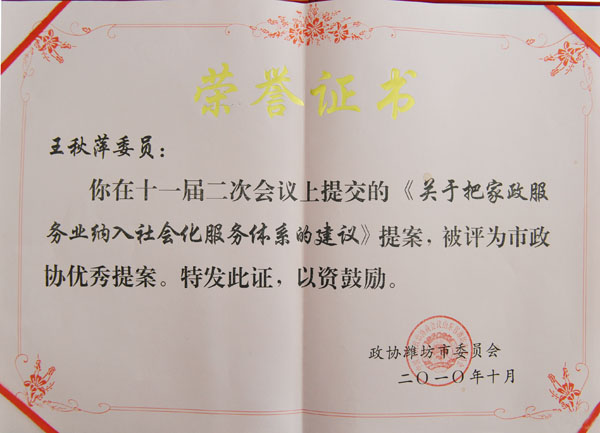 荣誉证书
王秋萍委员：
你在十一届二次会议上提交的《关于把家政服
务业纳入社会化服务体系的建议》提案，被评为市政
协优秀提案。特发此证，以资鼓励。
政协潍坊市委员会
二〇一〇年十月